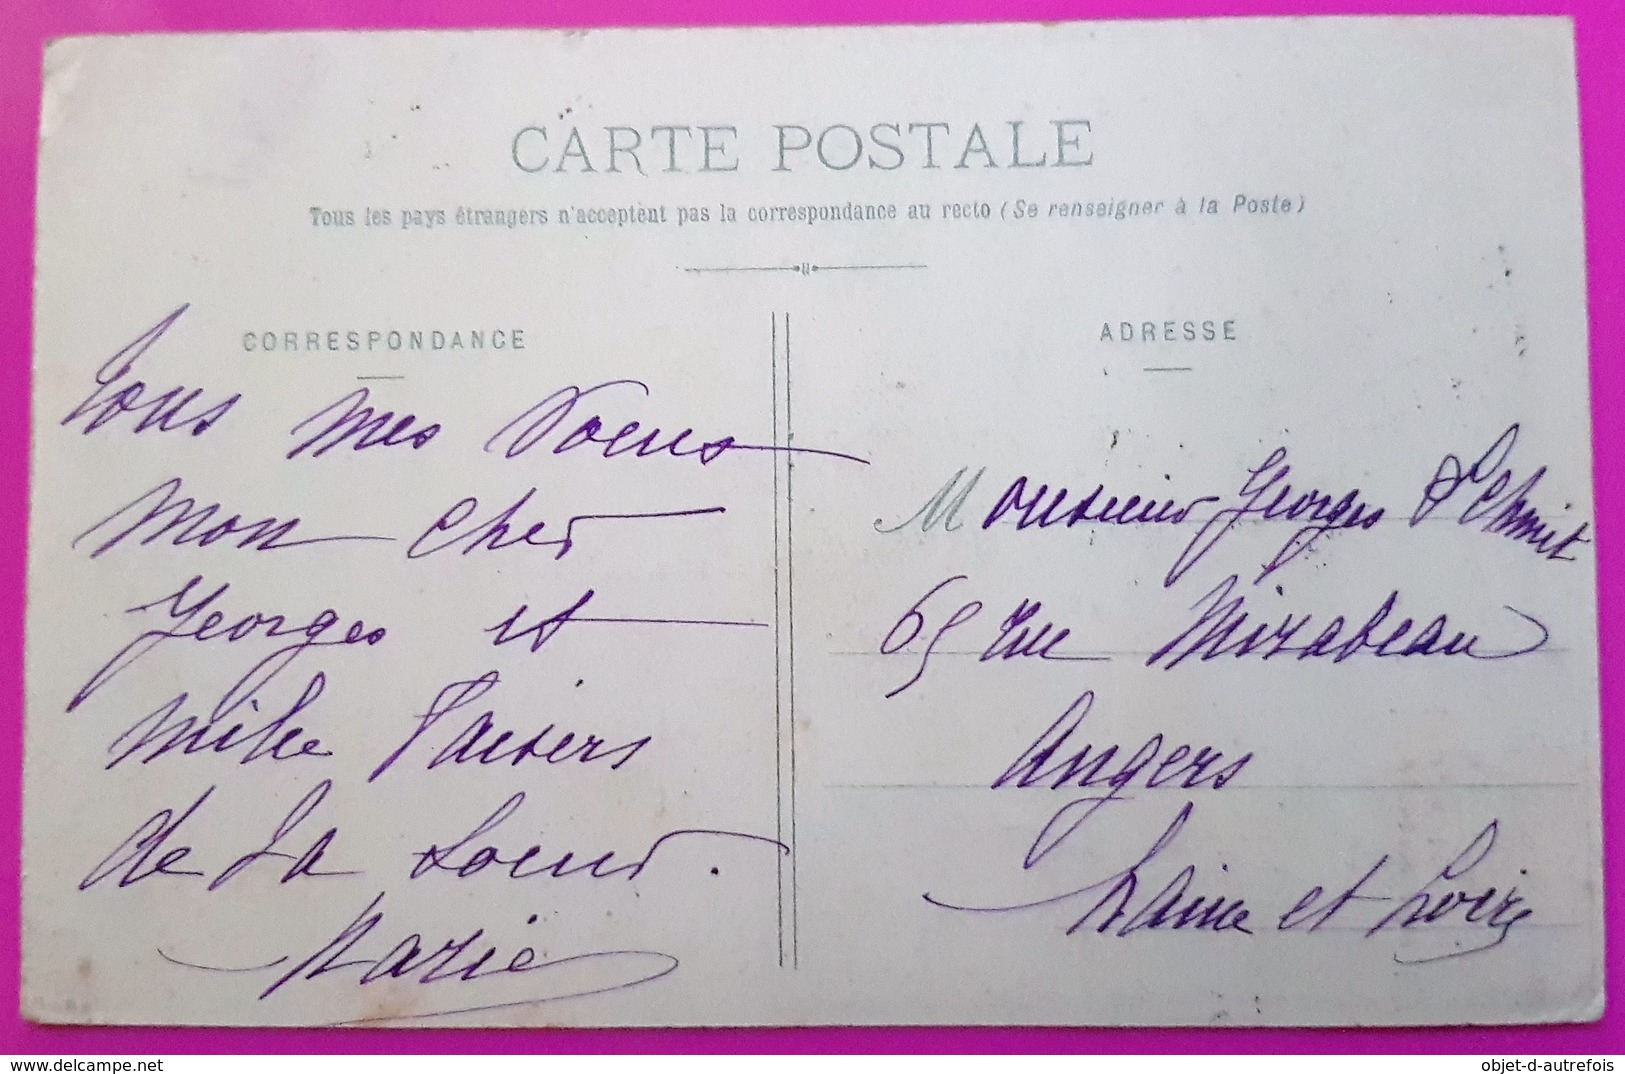 CARTE POSTALE
Tous les pays étrangers n'acceptent pas la correspondance au recto (Se renseigner à la Poste)
CORRESPONDANCE
Tous mes Voeux
mon cher
Georges et
mille Baisers
de ta Soeur.
Marie
ADRESSE
Monsieur Georges Schmit
65 rue Mirabeau
Angers
Maine et Loire
delcampe.net
objet-d-autrefois